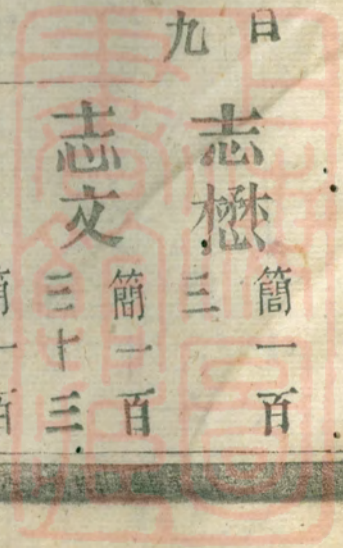 日
九
志懋
簡一百
三
志文
簡一百
三十三
簡一百